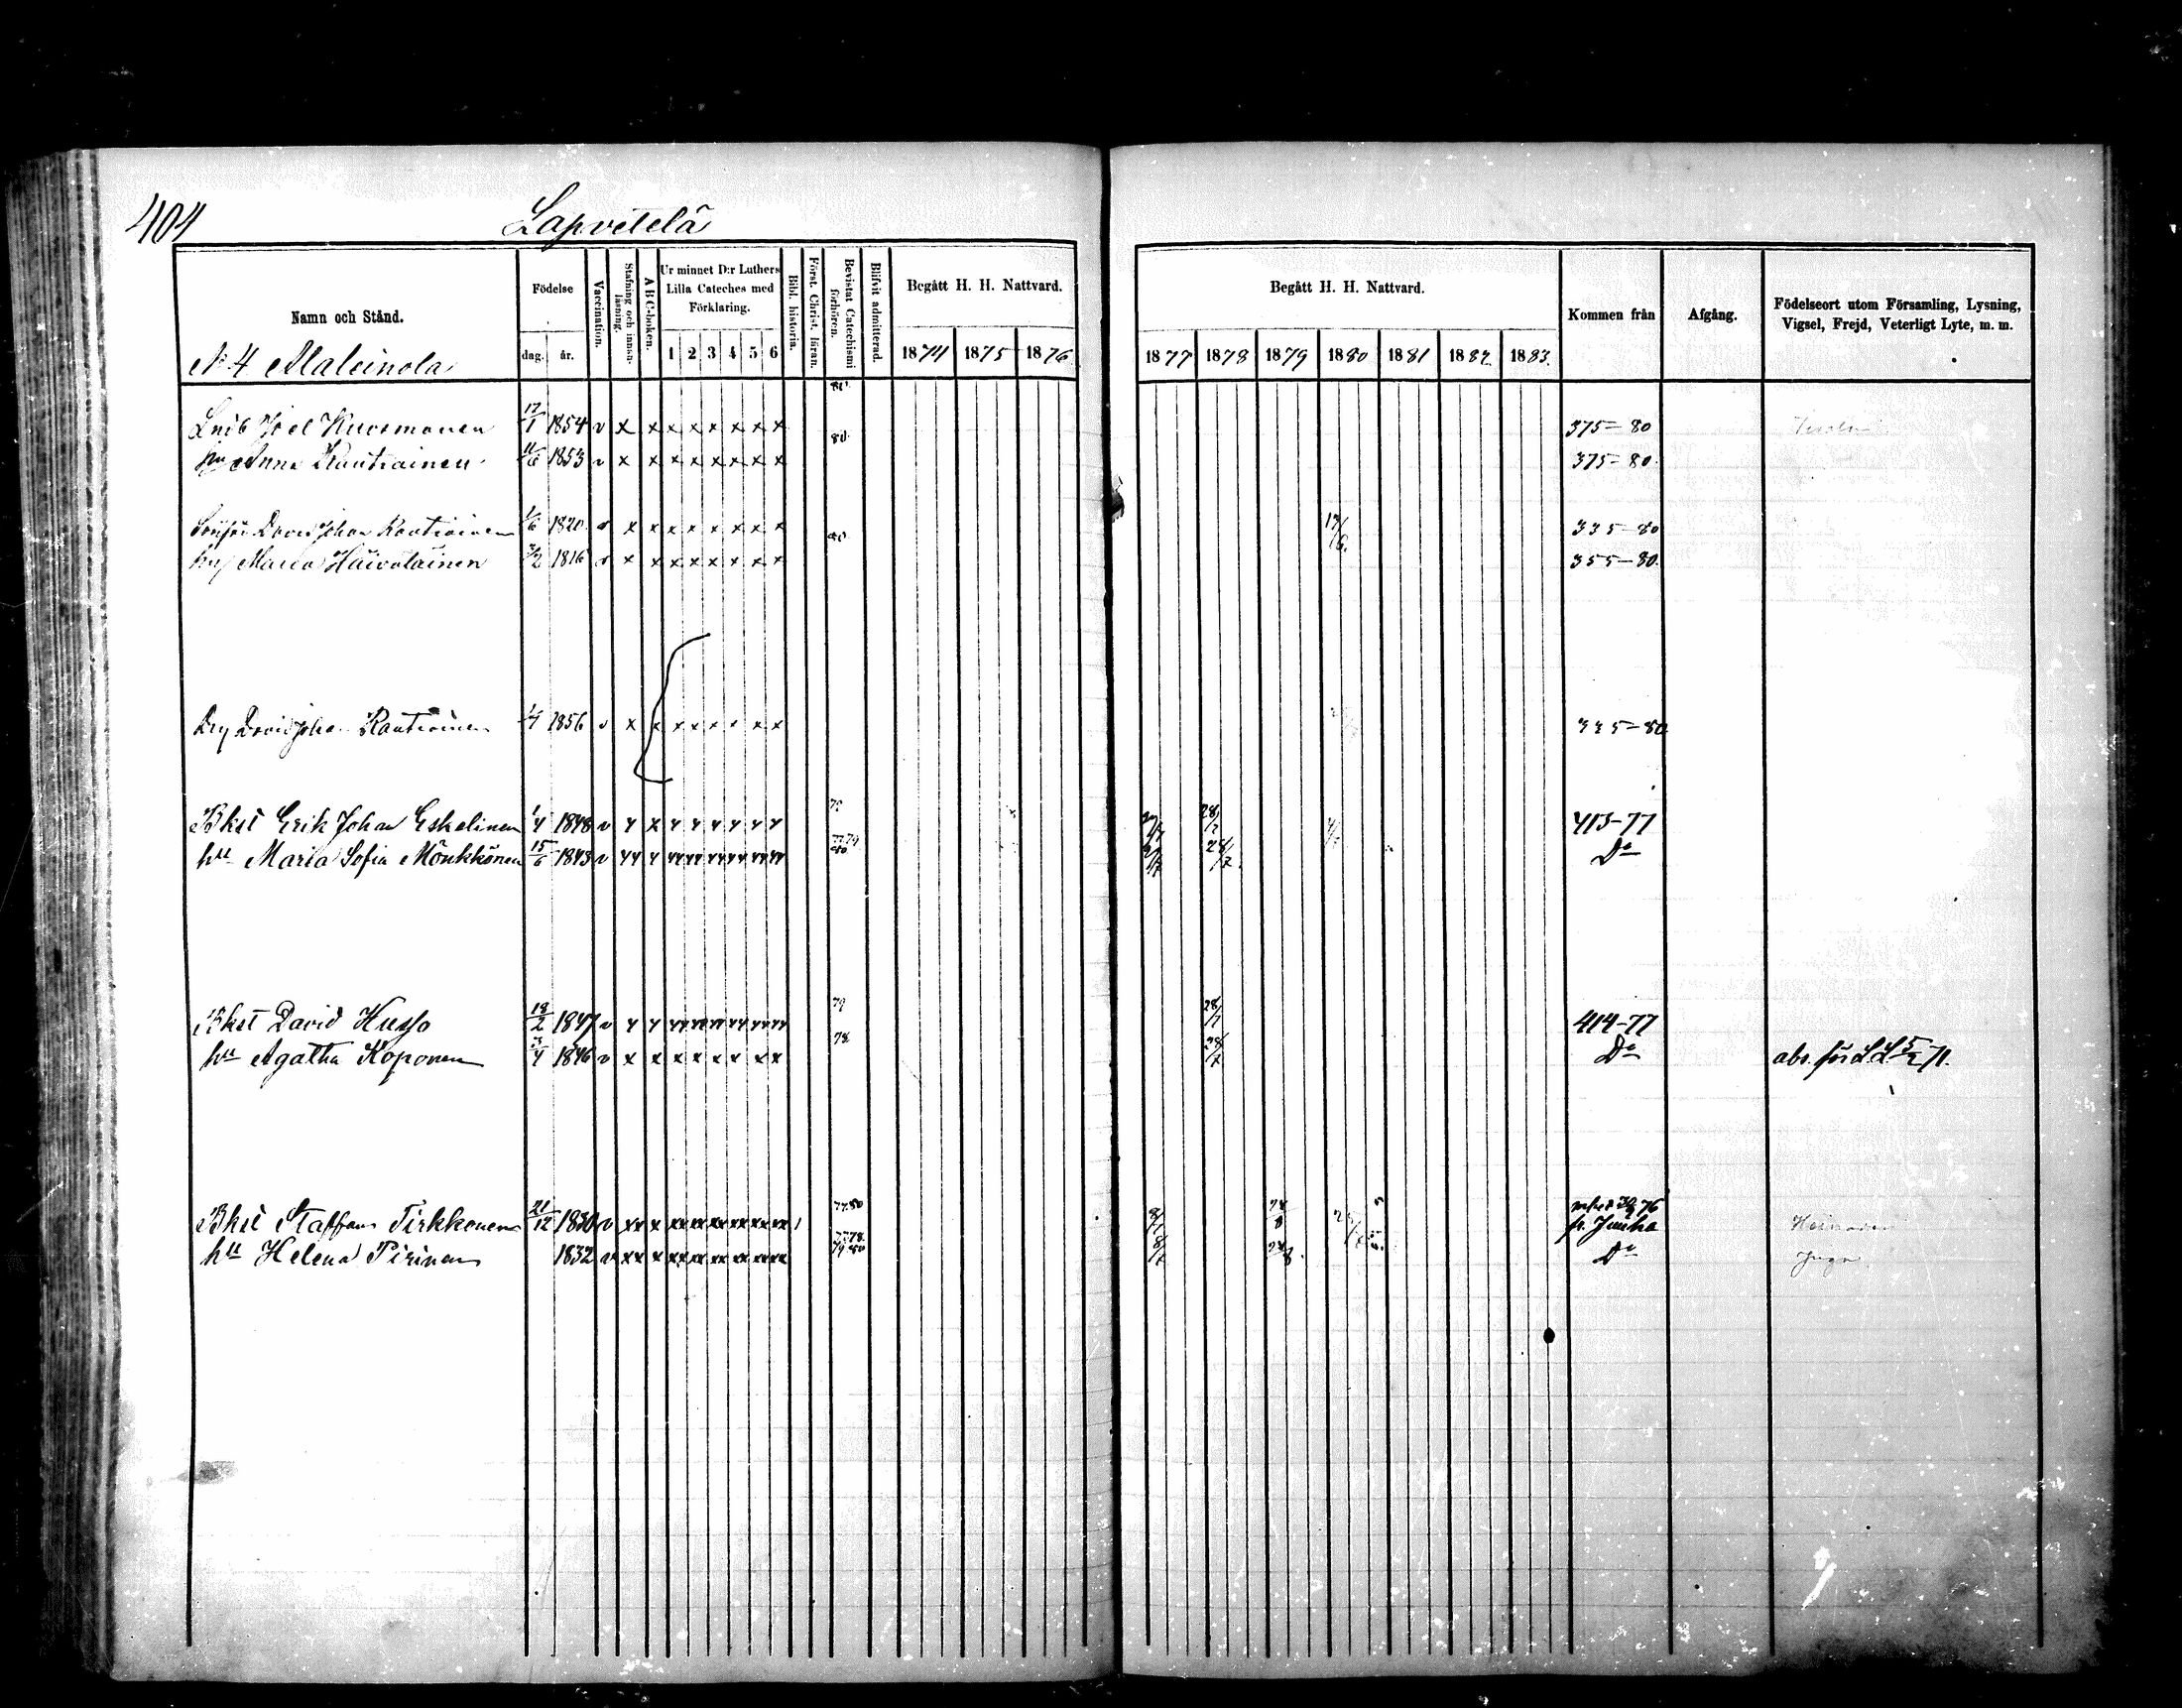 404
Lapvetelä
Namn och Stånd.
Födelse
dag. år.
Vaccination.
Stafning och innan-läsning.
A B C-boken.
Ur minnet D:r Luthers Lilla Cateches med Förklaring.
1 2 3 4 5 6
Bibl. historia.
Först. Christ. läran.
Bevistat Catechismi förhören.
Blifvit admitterad.
Begått H. H. Nattvard.
1874 1875 1876
Begått H. H. Nattvard.
1877 1878 1879 1880 1881 1882 1883.
Kommen från
Afgång.
Födelseort utom Församling, Lysning, Vigsel, Frejd, Veterligt Lyte, m. m.
N 4 Maleinola
80.
Joel Kuosmanen 17/1 1854 v x x x x x x x x 375-80
80.
hu Anna Rautiainen 11/6 1853 v x x x x x x x x 375-80.
David Johan Rautiainen 1/6 1820 v x x x x x x x x 17/6. 335-80
hu Maria Häiväläinen 3/2 1816 v x x x x x x x x 355-80.
David Johan Rautiainen 1/4 1856 v x x x x x x x x 335-80
Bkst Erik Johan Eskelinen 1/4 1848 v 79 28/7 413-77
hu Maria Sofia Mönkkönen 15/6 1843 v 77.79 80 28/7. Do
Bkst David Husso 18/2 1847 v 79 28/7 414-77
hu Agatha Koponen 3/4 1846 v x x x x x x x x 78 28/7 Do abs. för L.L. 5/2 71.
Bkst Staffan Tirkkonen 21/12 1830 v 77.80 8/7 24/8 fr. Juuka
hu Helena Pirinen 1832 v 77.78. 79.80 8/7 24/8. Do